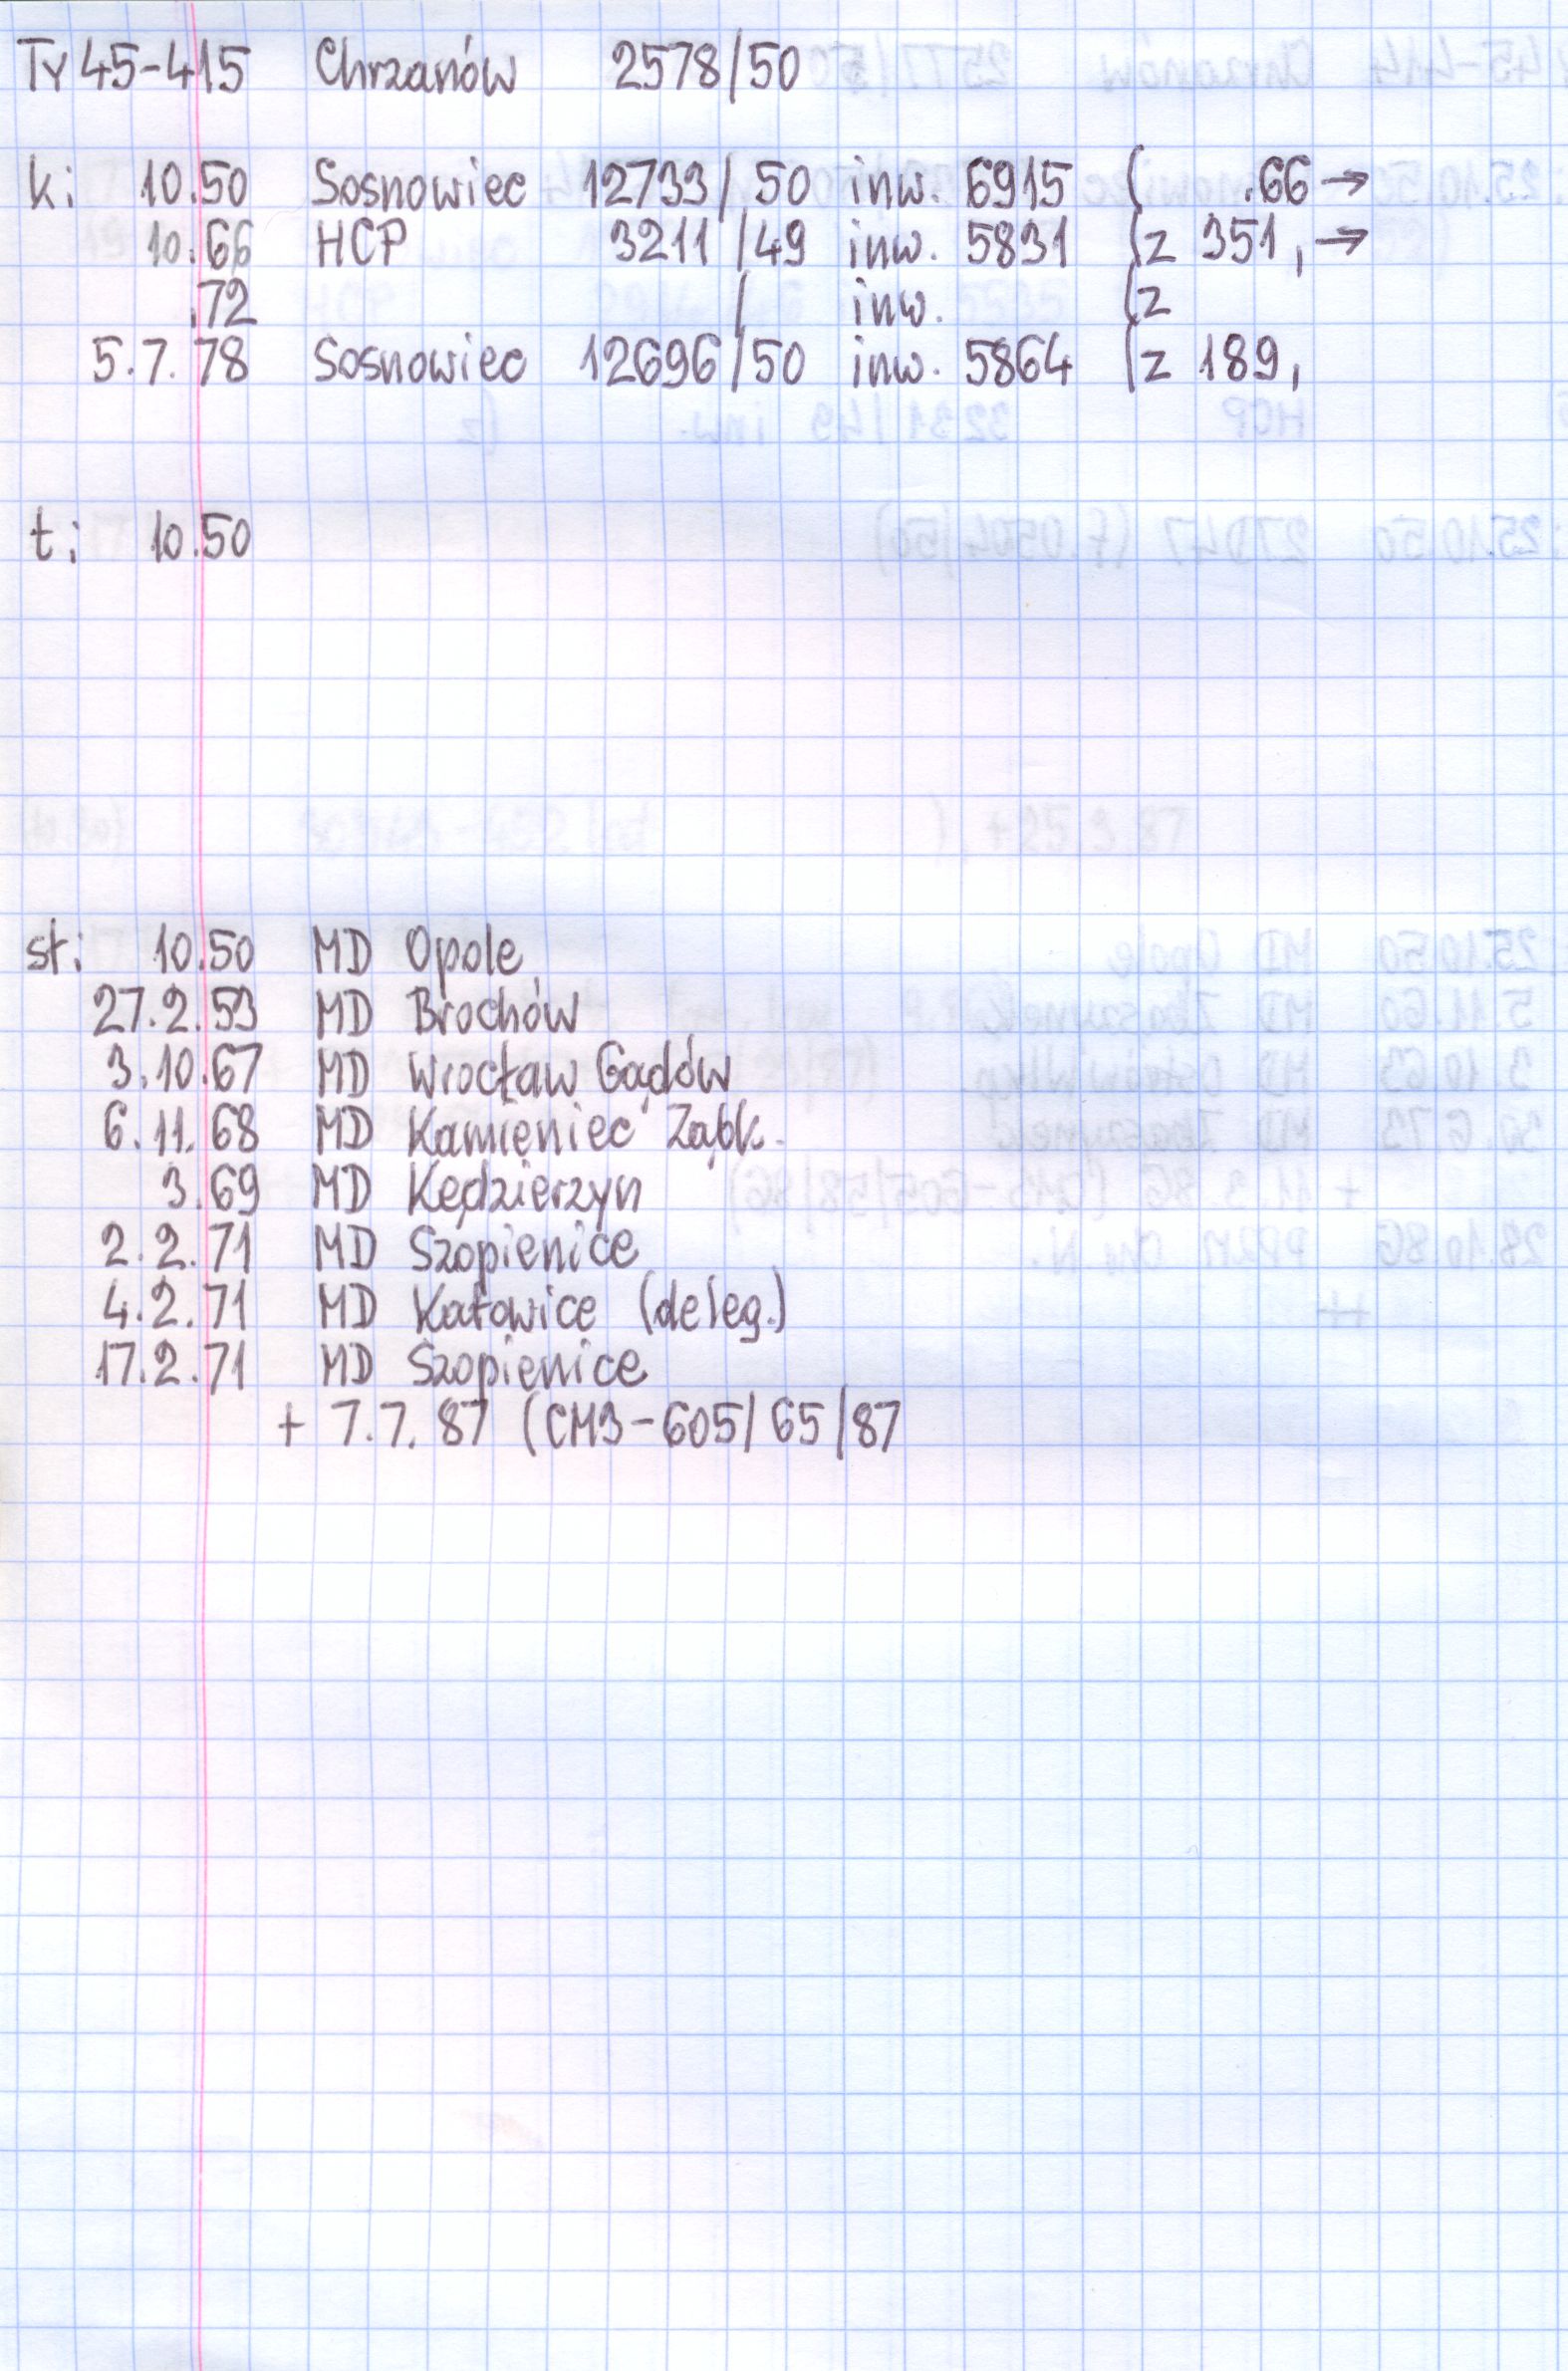 Ty45-415 Chrzanów 2578/50
k: 10.50 Sosnowiec 12733/50 inw. 6915 ( .66→
10.66 HCP 3211/49 inw. 5831 (z 351, →
.72 / inw. (z
5.7.78 Sosnowiec 12696/50 inw. 5864 (z 189,
t: 10.50
st: 10.50 MD Opole
27.2.53 MD Brochów
3.10.67 MD Wrocław Gądów
6.11.68 MD Kamieniec Ząbk.
3.69 MD Kędzierzyn
2.2.71 MD Szopienice
4.2.71 MD Katowice (deleg.)
17.2.71 MD Szopienice
+ 7.7.87 (CM3-605/65/87